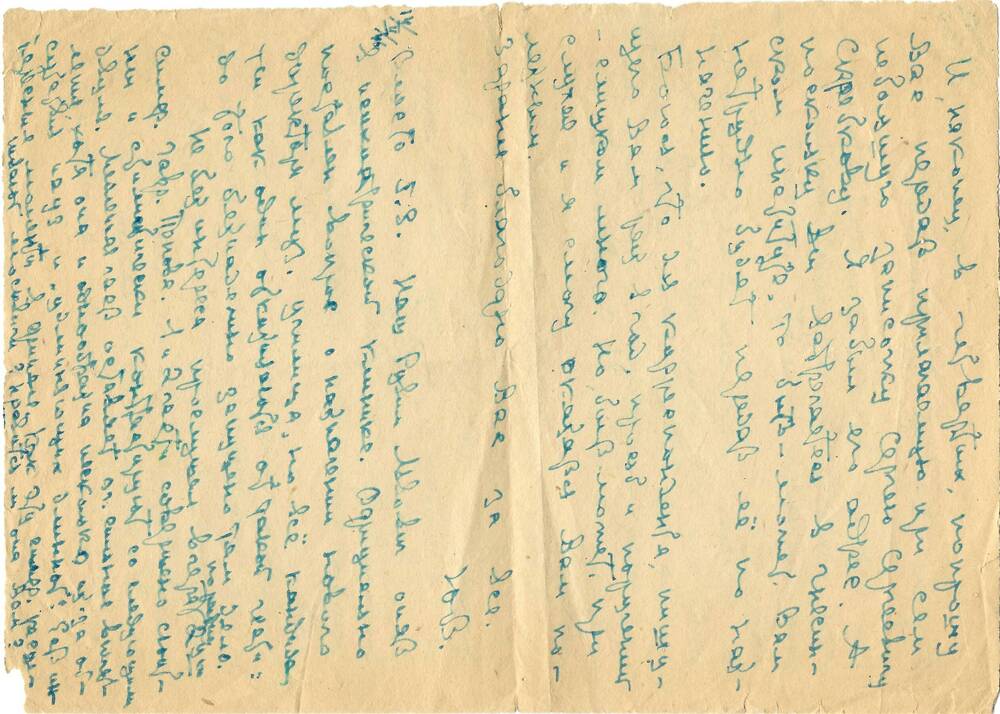 И, наконец, в четвертых, попрошу
Вас передать прилагаемую при сем
небольшую записочку Сергею Сергеевичу
Скребкову. Я забыл его адрес. А
поскольку Вы встречаетесь в Гнесин-
ском институте, то быть может, Вам
нетрудно будет передать её по наз-
начению.
Боюсь, что для корреспондента, пишу-
щего Вам раз в год, просьб и поручений
- слишком много. Но, быть может, при
случае и я смогу оказаться Вам по-
лезным.
Заранее благодарю Вас за все.
Ю В.
Вместо P.S. Наш Рувим Львович опять
в психиатрической клинике. Официально
поставлен вопрос о назначении нового
директора муз. училища, но всё кандида-
ты как один отказываются от такой чести:
до того безнадежно запущено там дело.
Не без интереса прослушал вчера по радио 2ю
симф. Гавр. Попова. 1 и 2 части совершенно
и стилистически контрастируют со следующими
двумя. Медленная часть оставляет оч. сильное впечат-
ление, хотя она и однообразна несколько из-за от-
сутствия пауз и "удлиняющих длиннот". Есть ин-
тересные моменты в финале. Как эту симф. расце-
нивают москвичи? Нравится ли она Вам?